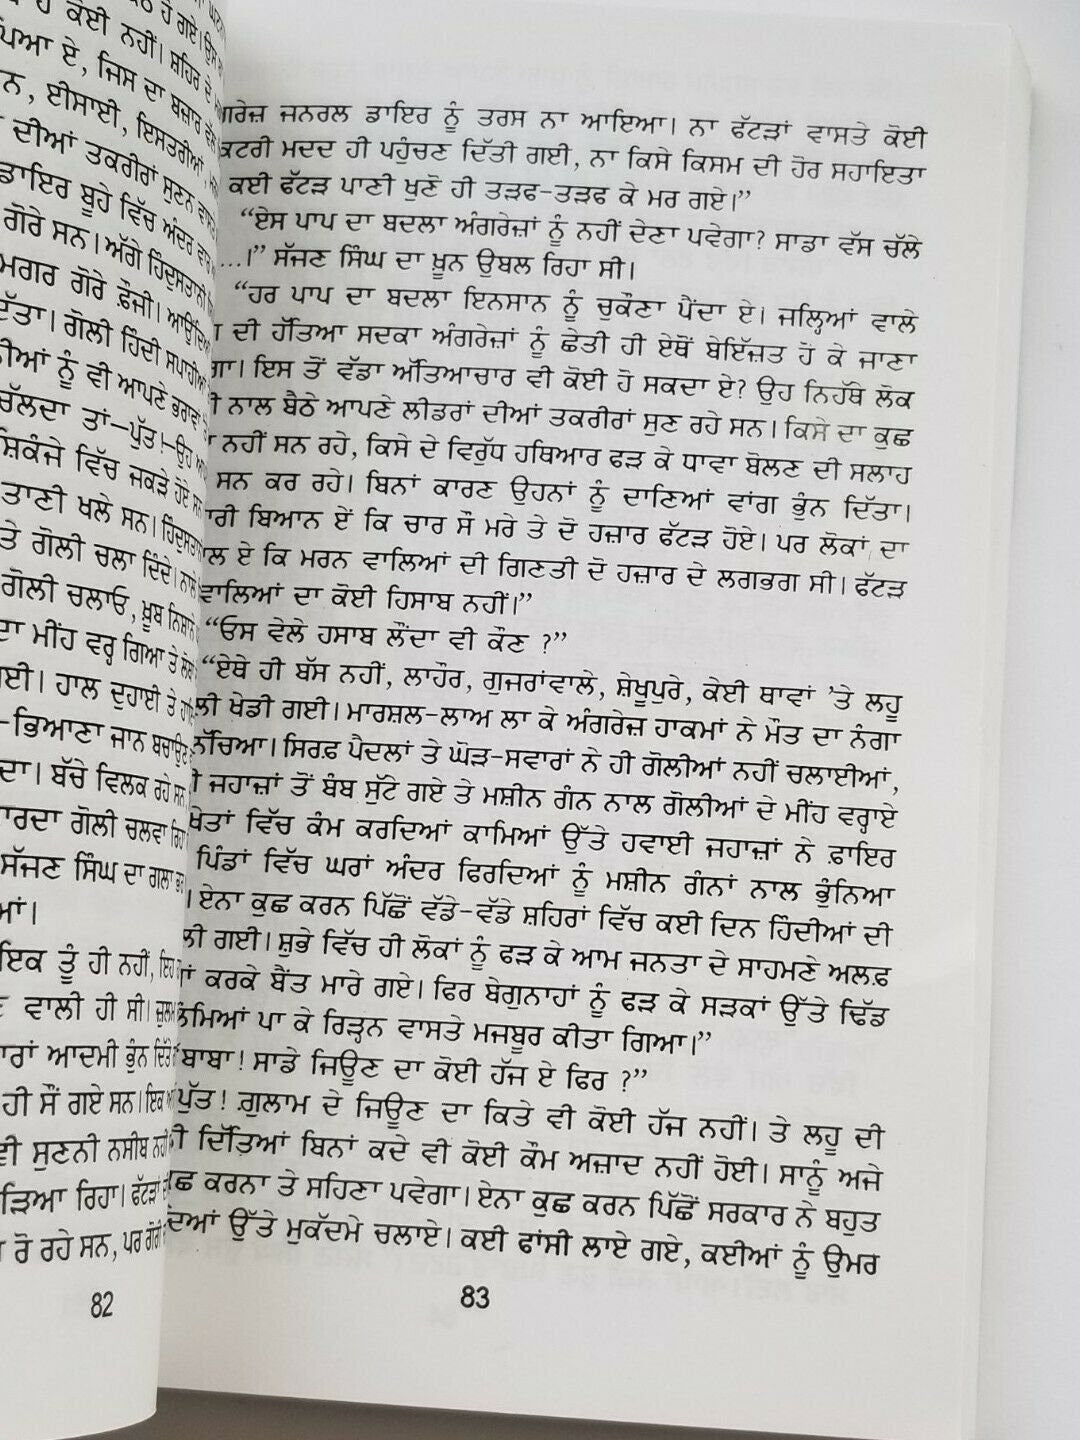 ਹੈ ਕੋਈ ਨਹੀਂ। ਸ਼ਹਿਰ ਦੇ
ਪਿਆ ਏ, ਜਿਸ ਦਾ ਬਜ਼ਾਰ ਵੱਲ
ਈਸਾਈ, ਇਸਤਰੀਆਂ,
ਦੀਆਂ ਤਕਰੀਰਾਂ ਸੁਣਨ ਵਾਸਤੇ
ਡਾਇਰ ਬੂਹੇ ਵਿੱਚ ਅੰਦਰ
ਗੋਰੇ ਸਨ। ਅੱਗੇ ਹਿੰਦੁਸਤਾਨੀ
ਮਗਰ ਗੋਰੇ ਫ਼ੌਜੀ।
ਗੋਲੀ ਹਿੰਦੀ ਸਪਾਹੀਆਂ
ਨੂੰ ਵੀ ਆਪਣੇ ਭਰਾਵਾਂ
ਚੱਲਦਾ ਤਾਂ—ਪੁੱਤ!—ਉਹ
ਸ਼ਿਕੰਜੇ ਵਿੱਚ ਜਕੜੇ ਹੋਏ ਸਨ
ਤਾਣੀ ਖਲੇ ਸਨ।
ਤੇ ਗੋਲੀ ਚਲਾ ਦਿੰਦੇ। ਨਾਲੇ
ਗੋਲੀ ਚਲਾਓ, ਖ਼ੂਬ ਨਿਸ਼ਾਨੇ
ਦਾ ਮੀਂਹ ਵਰ੍ਹ ਗਿਆ ਤੇ ਲੋਕ
ਹਾਲ ਦੁਹਾਈ ਤੇ
ਜਾਨ ਬਚਾਉਣ
ਬੱਚੇ ਵਿਲਕ ਰਹੇ ਸਨ,
ਗੋਲੀ ਚਲਵਾ ਰਿਹਾ
ਸੱਜਣ ਸਿੰਘ ਦਾ ਗਲਾ ਭਰ
ਇਕ ਤੂੰ ਹੀ ਨਹੀਂ, ਇਹ
ਵਾਲੀ ਹੀ ਸੀ। ਜ਼ੁਲਮ
ਆਦਮੀ ਭੁੰਨ ਦਿੱਤੇ
ਹੀ ਸੌਂ ਗਏ ਸਨ। ਇਕ
ਸੁਣਨੀ ਨਸੀਬ ਨਹੀਂ
ਰਿਹਾ। ਫੱਟੜਾਂ
ਰੋ ਰਹੇ ਸਨ, ਪਰ ਗੋਰੀ
82
ਗਰੇਜ਼ ਜਨਰਲ ਡਾਇਰ ਨੂੰ ਤਰਸ ਨਾ ਆਇਆ। ਨਾ ਫੱਟੜਾਂ ਵਾਸਤੇ ਕੋਈ
ਕਟਰੀ ਮਦਦ ਹੀ ਪਹੁੰਚਣ ਦਿੱਤੀ ਗਈ, ਨਾ ਕਿਸੇ ਕਿਸਮ ਦੀ ਹੋਰ ਸਹਾਇਤਾ
ਕਈ ਫੱਟੜ ਪਾਣੀ ਖੁਣੋ ਹੀ ਤੜਫ-ਤੜਫ ਕੇ ਮਰ ਗਏ।”
“ਏਸ ਪਾਪ ਦਾ ਬਦਲਾ ਅੰਗਰੇਜ਼ਾਂ ਨੂੰ ਨਹੀਂ ਦੇਣਾ ਪਵੇਗਾ? ਸਾਡਾ ਵੱਸ ਚੱਲੇ
...।” ਸੱਜਣ ਸਿੰਘ ਦਾ ਖ਼ੂਨ ਉਬਲ ਰਿਹਾ ਸੀ।
“ਹਰ ਪਾਪ ਦਾ ਬਦਲਾ ਇਨਸਾਨ ਨੂੰ ਚੁਕੌਣਾ ਪੈਂਦਾ ਏ। ਜਲ੍ਹਿਆਂ ਵਾਲੇ
ਦੀ ਹੱਤਿਆ ਸਦਕਾ ਅੰਗਰੇਜ਼ਾਂ ਨੂੰ ਛੇਤੀ ਹੀ ਏਥੋਂ ਬੇਇੱਜ਼ਤ ਹੋ ਕੇ ਜਾਣਾ
ਗਾ। ਇਸ ਤੋਂ ਵੱਡਾ ਅੱਤਿਆਚਾਰ ਵੀ ਕੋਈ ਹੋ ਸਕਦਾ ਏ? ਉਹ ਨਿਹੱਥੇ ਲੋਕ
ਨਾਲ ਬੈਠੇ ਆਪਣੇ ਲੀਡਰਾਂ ਦੀਆਂ ਤਕਰੀਰਾਂ ਸੁਣ ਰਹੇ ਸਨ। ਕਿਸੇ ਦਾ ਕੁਛ
ਨਹੀਂ ਸਨ ਰਹੇ, ਕਿਸੇ ਦੇ ਵਿਰੁੱਧ ਹਥਿਆਰ ਫੜ ਕੇ ਧਾਵਾ ਬੋਲਣ ਦੀ ਸਲਾਹ
ਸਨ ਕਰ ਰਹੇ। ਬਿਨਾਂ ਕਾਰਣ ਉਹਨਾਂ ਨੂੰ ਦਾਣਿਆਂ ਵਾਂਗ ਭੁੰਨ ਦਿੱਤਾ।
ਾਰੀ ਬਿਆਨ ਏਂ ਕਿ ਚਾਰ ਸੌ ਮਰੇ ਤੇ ਦੋ ਹਜ਼ਾਰ ਫੱਟੜ ਹੋਏ। ਪਰ ਲੋਕਾਂ ਦਾ
ਾਲ ਏ ਕਿ ਮਰਨ ਵਾਲਿਆਂ ਦੀ ਗਿਣਤੀ ਦੋ ਹਜ਼ਾਰ ਦੇ ਲਗਭਗ ਸੀ। ਫੱਟੜ
ਵਾਲਿਆਂ ਦਾ ਕੋਈ ਹਿਸਾਬ ਨਹੀਂ।”
“ਓਸ ਵੇਲੇ ਹਸਾਬ ਲੌਂਦਾ ਵੀ ਕੌਣ ?”
“ਏਥੇ ਹੀ ਬੱਸ ਨਹੀਂ, ਲਾਹੌਰ, ਗੁਜਰਾਂਵਾਲੇ, ਸ਼ੇਖੂਪੁਰੇ, ਕੇਈ ਥਾਵਾਂ ’ਤੇ ਲਹੂ
ਲੀ ਖੇਡੀ ਗਈ। ਮਾਰਸ਼ਲ-ਲਾਅ ਲਾ ਕੇ ਅੰਗਰੇਜ਼ ਹਾਕਮਾਂ ਨੇ ਮੌਤ ਦਾ ਨੰਗਾ
ਨੱਚਿਆ। ਸਿਰਫ਼ ਪੈਦਲਾਂ ਤੇ ਘੋੜ-ਸਵਾਰਾਂ ਨੇ ਹੀ ਗੋਲੀਆਂ ਨਹੀਂ ਚਲਾਈਆਂ,
ਜਹਾਜ਼ਾਂ ਤੋਂ ਬੰਬ ਸੁੱਟੇ ਗਏ ਤੇ ਮਸ਼ੀਨ ਗੰਨ ਨਾਲ ਗੋਲੀਆਂ ਦੇ ਮੀਂਹ ਵਰ੍ਹਾਏ
ਖੇਤਾਂ ਵਿੱਚ ਕੰਮ ਕਰਦਿਆਂ ਕਾਮਿਆਂ ਉੱਤੇ ਹਵਾਈ ਜਹਾਜ਼ਾਂ ਨੇ ਫ਼ਾਇਰ
ਪਿੰਡਾਂ ਵਿੱਚ ਘਰਾਂ ਅੰਦਰ ਫਿਰਦਿਆਂ ਨੂੰ ਮਸ਼ੀਨ ਗੰਨਾਂ ਨਾਲ ਭੁੰਨਿਆ
। ਏਨਾ ਕੁਛ ਕਰਨ ਪਿੱਛੋਂ ਵੱਡੇ-ਵੱਡੇ ਸ਼ਹਿਰਾਂ ਵਿੱਚ ਕਈ ਦਿਨ ਹਿੰਦੀਆਂ ਦੀ
ਲੀ ਗਈ। ਸ਼ੁਭੇ ਵਿੱਚ ਹੀ ਲੋਕਾਂ ਨੂੰ ਫੜ ਕੇ ਆਮ ਜਨਤਾ ਦੇ ਸਾਹਮਣੇ ਅਲਫ਼
ਕਰਕੇ ਬੈਂਤ ਮਾਰੇ ਗਏ। ਫਿਰ ਬੇਗੁਨਾਹਾਂ ਨੂੰ ਫੜ ਕੇ ਸੜਕਾਂ ਉੱਤੇ ਢਿੱਡ
ਲੰਮਿਆਂ ਪਾ ਕੇ ਰਿੜ੍ਹਨ ਵਾਸਤੇ ਮਜਬੂਰ ਕੀਤਾ ਗਿਆ।”
ਬਾਬਾ! ਸਾਡੇ ਜਿਊਣ ਦਾ ਕੋਈ ਹੱਜ ਏ ਫਿਰ ?”
ਪੁੱਤ! ਗ਼ੁਲਾਮ ਦੇ ਜਿਊਣ ਦਾ ਕਿਤੇ ਵੀ ਕੋਈ ਹੱਜ ਨਹੀਂ। ਤੇ ਲਹੂ ਦੀ
ਦਿੱਤਿਆਂ ਬਿਨਾਂ ਕਦੇ ਵੀ ਕੋਈ ਕੌਮ ਅਜ਼ਾਦ ਨਹੀਂ ਹੋਈ। ਸਾਨੂੰ ਅਜੇ
ਕੁਛ ਕਰਨਾ ਤੇ ਸਹਿਣਾ ਪਵੇਗਾ। ਏਨਾ ਕੁਛ ਕਰਨ ਪਿੱਛੋਂ ਸਰਕਾਰ ਨੇ ਬਹੁਤ
ਦਿਆਂ ਉੱਤੇ ਮੁਕੱਦਮੇ ਚਲਾਏ। ਕਈ ਫਾਂਸੀ ਲਾਏ ਗਏ, ਕਈਆਂ ਨੂੰ ਉਮਰ
83